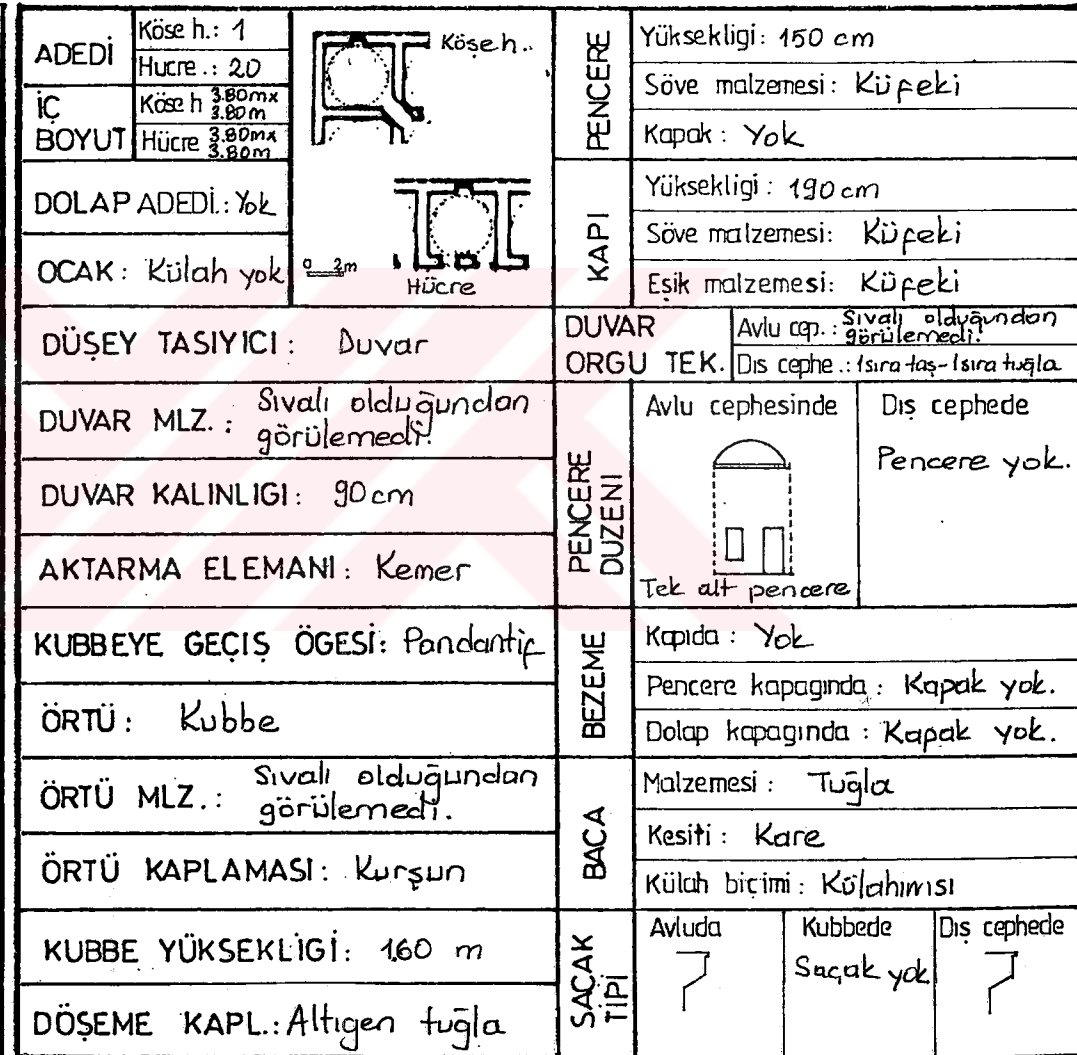 ADEDİ
Köse h.: 1
Hucre.: 20
İÇ BOYUT
Köse h 3.80mx 3.80m
Hücre 3.80mx 3.80m
DOLAP ADEDİ.: Yok
OCAK: Külah yok
Köşe h..
0 2m
Hücre
DÜŞEY TASIYICI: Duvar
DUVAR MLZ.: Sıvalı olduğundan
görülemedi.
DUVAR KALINLIGI: 90 cm
AKTARMA ELEMANI: Kemer
KUBBEYE GEÇIŞ ÖGESİ: Pandantif
ÖRTÜ: Kubbe
ÖRTÜ MLZ.: Sıvalı olduğundan
görülemedi.
ÖRTÜ KAPLAMASI: Kurşun
KUBBE YÜKSEKLİGİ: 1.60 m
DÖŞEME KAPL.: Altıgen tuğla
PENCERE
Yüksekligi: 150 cm
Söve malzemesi: Küfeki
Kapak: Yok
KAPI
Yüksekligi: 190 cm
Söve malzemesi: Küfeki
Eşik malzemesi: Küfeki
DUVAR
ORGU TEK.
Avlu cep.: Sıvalı olduğundan
görülemedi.
Dıs cephe.: 1sıra taş-1sıra tuğla
PENCERE
DUZENI
Avlu cephesinde
Tek alt pencere
Dış cephede
Pencere yok.
BEZEME
Kapıda: Yok
Pencere kapagında: Kapak yok.
Dolap kapagında: Kapak yok.
BACA
Malzemesi: Tuğla
Kesiti: Kare
Külah biçimi: Külahımsı
SAÇAK
TİPİ
Avluda
Kubbede
Saçak yok
Dış cephede